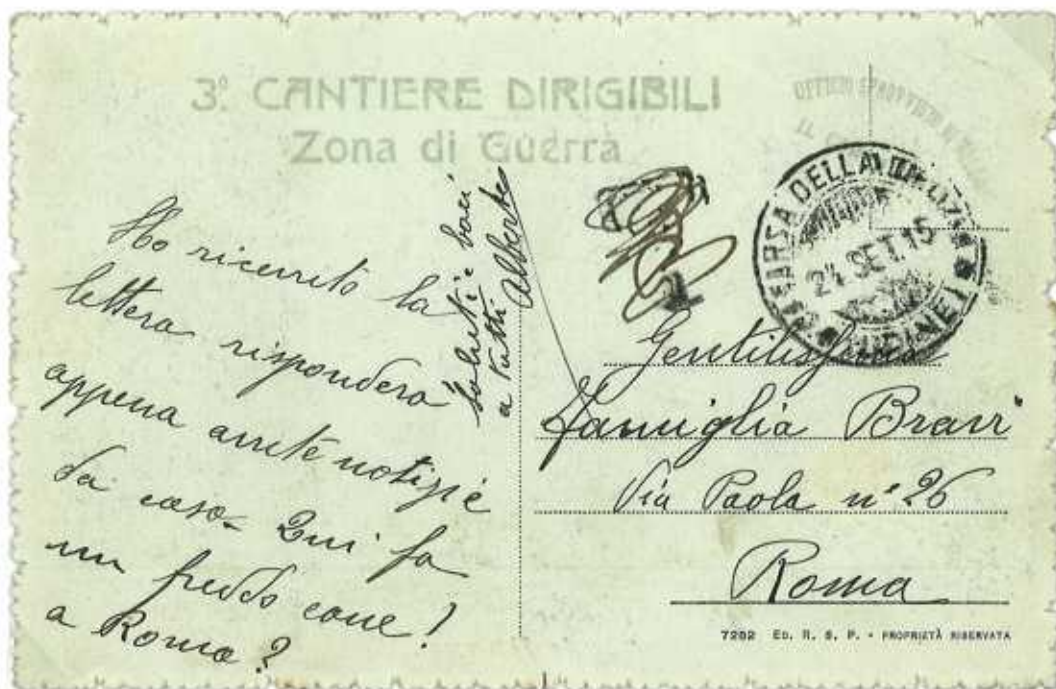 3° CANTIERE DIRIGIBILI
Zona di Guerra
UFFICIO SPROVVISTO DI BOLLO
Ho ricevuto la
lettera risponderò
appena avrete notizie
da casa= Qui fa
un freddo cane!
a Roma?
saluti e baci
a tutti Alberto
CAMARSA DELLA
24 SET. 15
(UDINE)
Gentilissima
Famiglia Bravi
Via Paola n° 26
Roma
7282 ED. R. S. P. - PROPRIETÀ RISERVATA